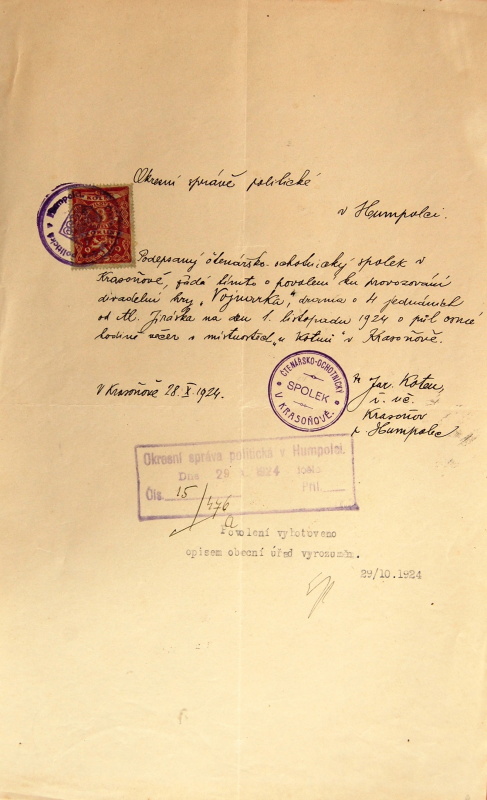 Okresní správě politické
v Humpolci.
politická v Humpolci
Podepsaný čtenářsko-ochotnický spolek v
Krasoňově, žádá tímto o povolení ku provozování
divadelní hry „Vojnarka", drama o 4 jednáních
od Al. Jiráska na den 1. listopadu 1924 o půl osmé
hodině večer v místnostech „u Kotnů" v Krasoňově.
V Krasoňově 28. X. 1924.
ČTENÁŘSKO-OCHOTNICKÝ
SPOLEK
V KRASOŇOVĚ.
Jar. Koten,
Krasoňov
Humpolec
Okresní správa politická v Humpolci.
Dne 29 1924
Čís. 15/476 Příl.
a
Povolení vyhotoveno
opisem obecní úřad vyrozuměn.
29/10.1924